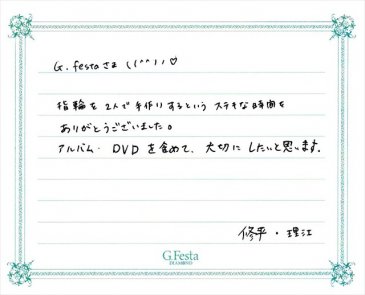 G.festaさま \(^^)ノ♡
指輪を2人で手作りするという ステキな時間を
ありがとうございました。
アルバム・DVDを含めて、大切にしたいと思います。
修平・理江
G.Festa
DIAMOND